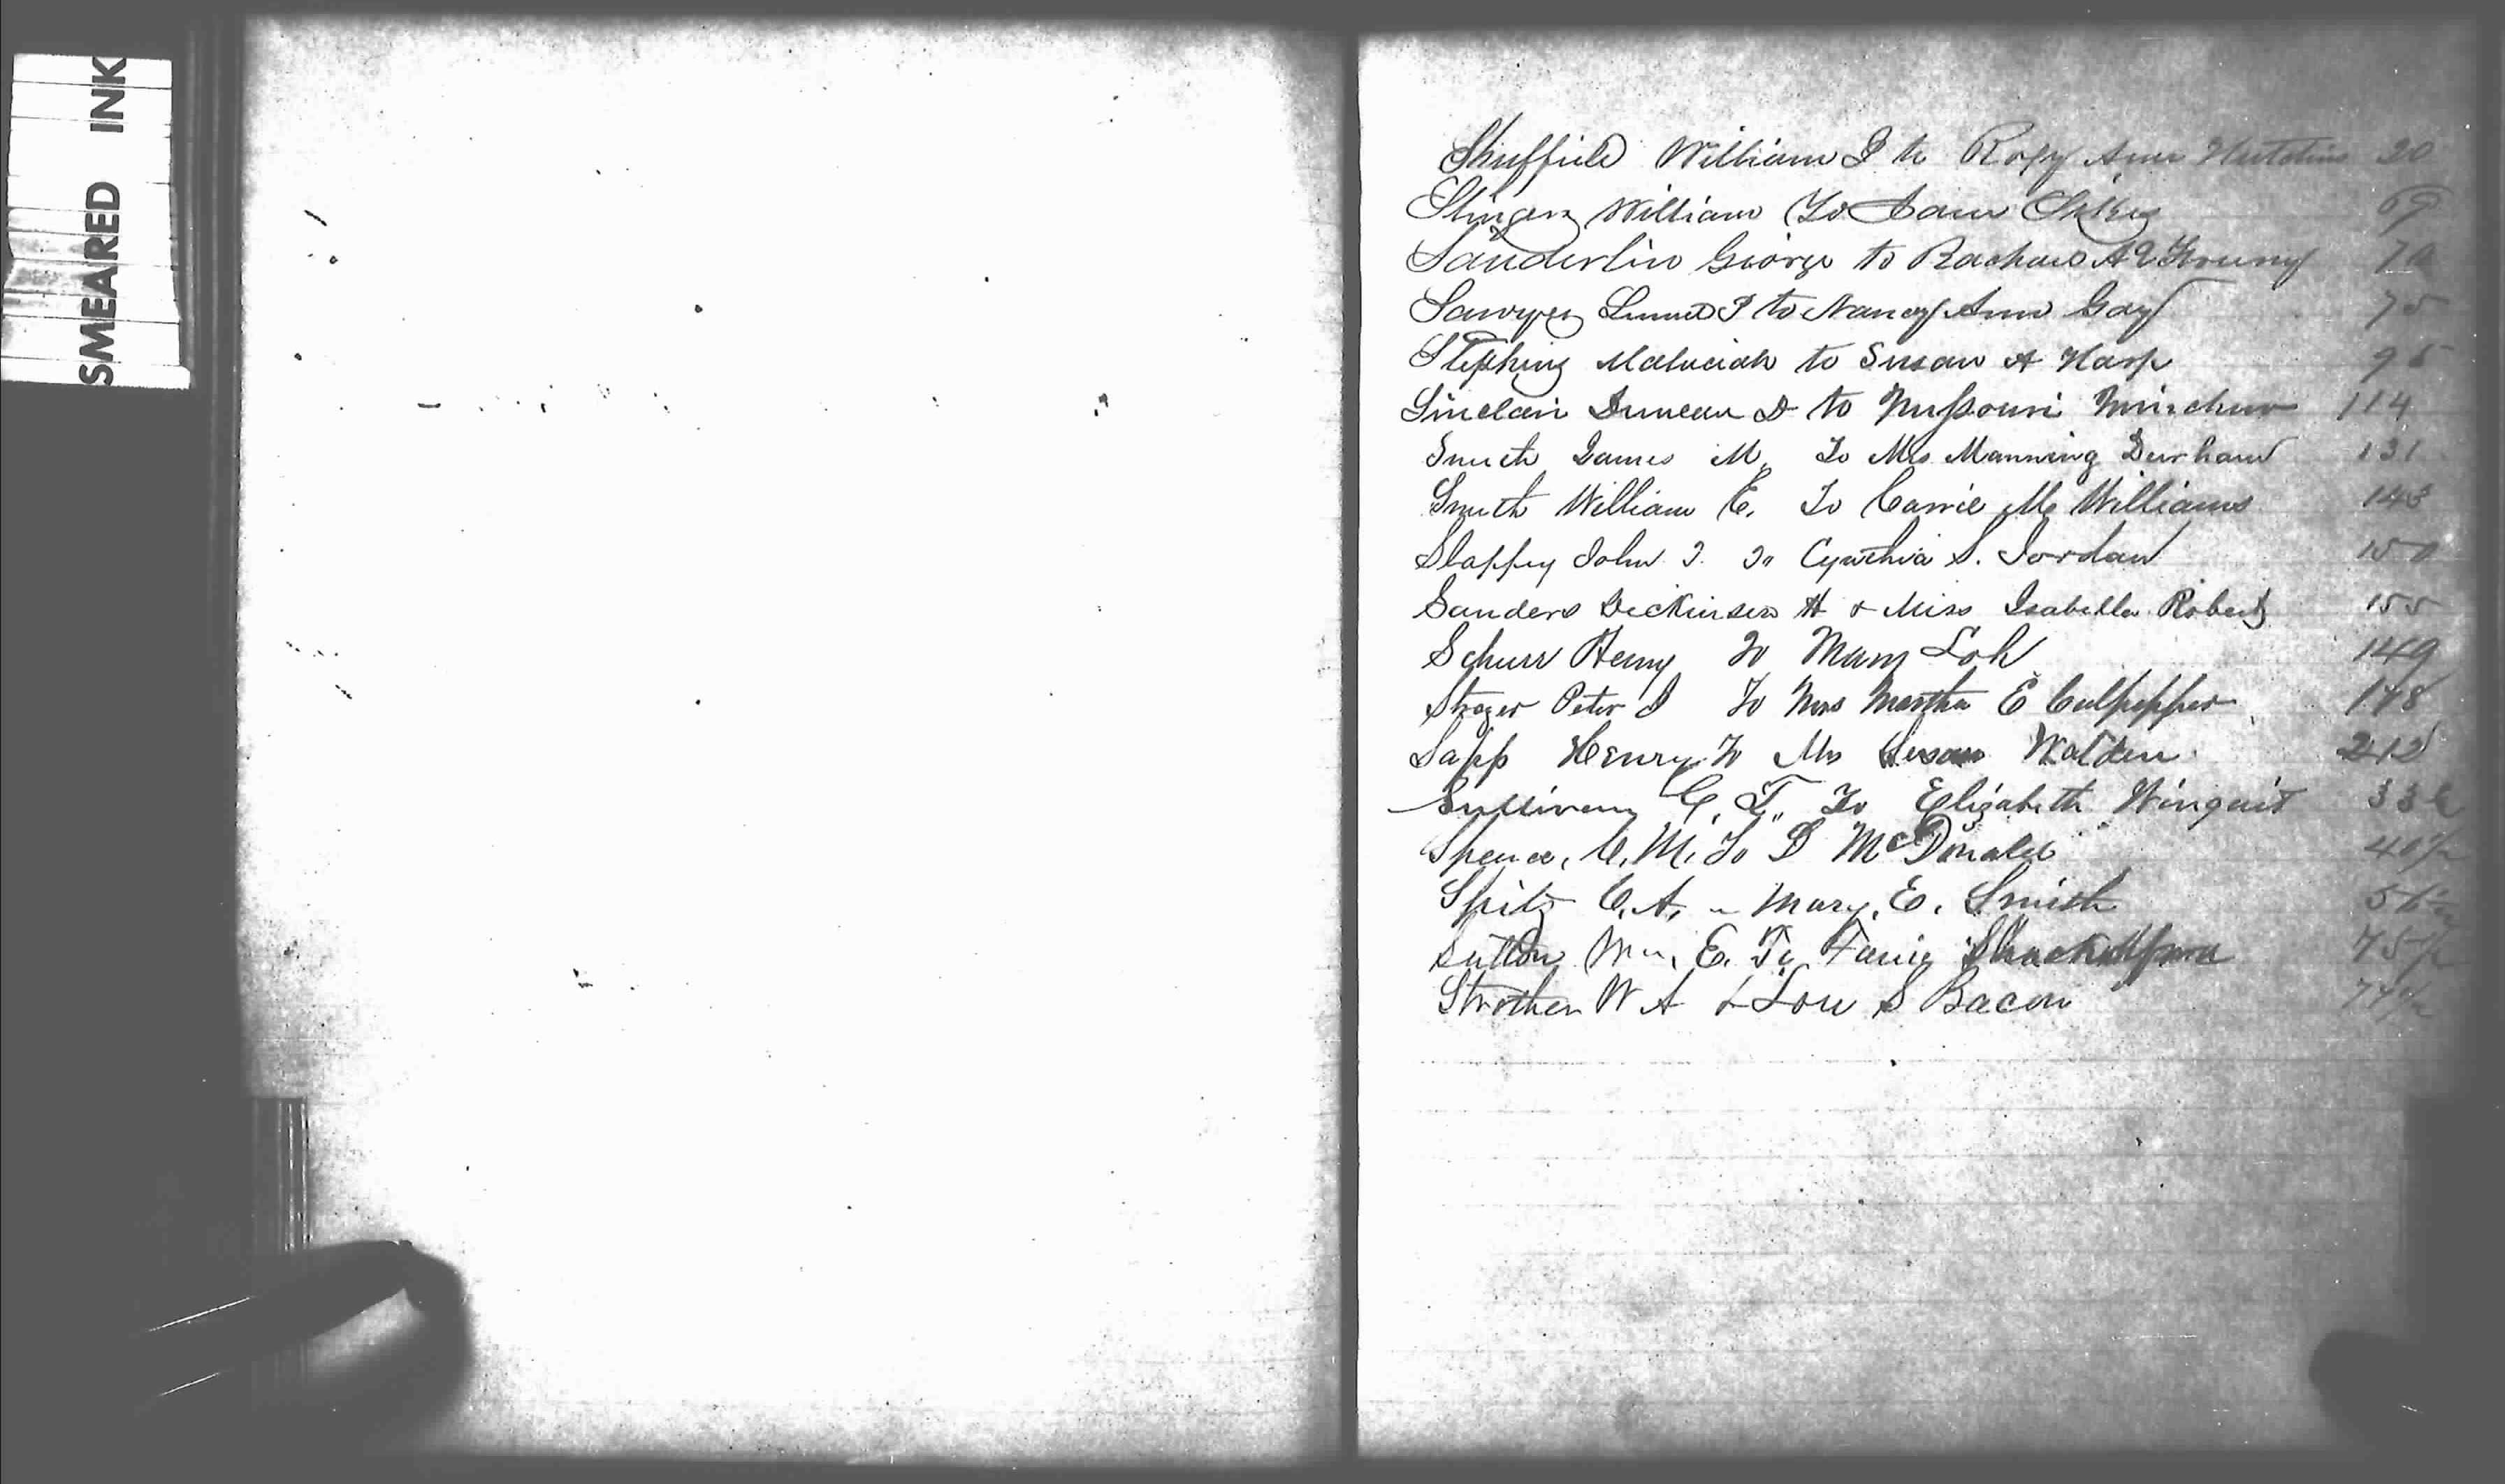 SMEARED INK
Sheffield William J to Roxy Ann Hutchins 20
Slinger William To Jane Sikes 69
Sanderlin George to Rachael A E Young 70
Sawyer Lemuel P to Nancy Ann Gay 75
Stephens Malachiah to Susan A Harp 95
Sinclair Duncan D to Missouri Minchew 114
Smith James M. To Mrs Manning Durham 131
Smith William E. To Carrie M. Williams 143
Slappey John T. To Cynthia S. Jordan 150
Sanders Dickinson H & Miss Isabella Roberts 155
Schurr Henry To Mary Loh 149
Strozer Peter J To Mrs Martha E Culpepper 178
Sapp Henry To Mrs Susan Walden 212
Sullivan C. T. To Elizabeth Winquist 336
Spence, C. M. To D McDonald 40½
Spitz C. A. " Mary. E. Smith 56½
Sutton Wm. E. To Fannie 75½
Strother W A & Lou S Bacon 77½